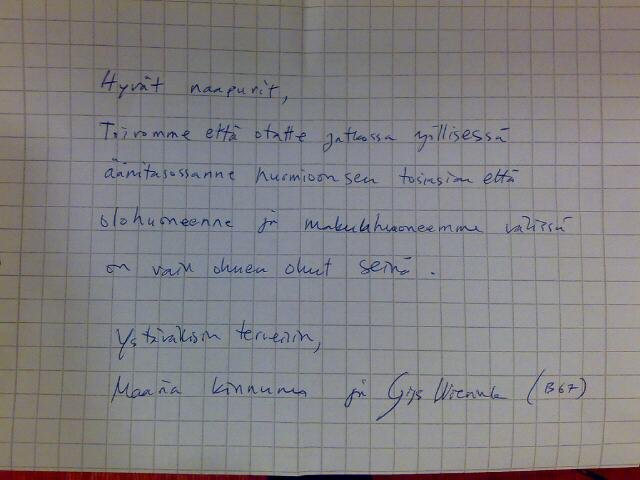 Hyvät naapurit,
Toivomme että otatte jatkossa yöllisessä
äänitasossanne huomioon sen tosiasian että
olohuoneenne ja makuuhuoneemme välissä
on vain ohuen ohut seinä.
Ystävällisin terveisin,
Kinnunen ja Gijs (B67)